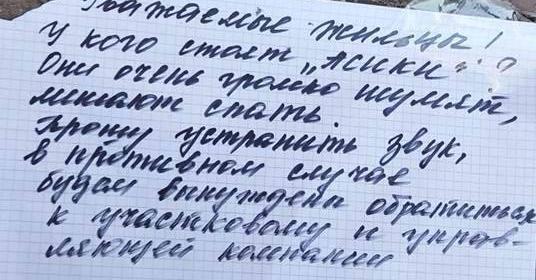 Уважаемые жильцы!
У кого стоят „Асики"?
Они очень громко шумят,
мешают спать.
Прошу устранить звук,
в противном случае
будем вынуждены обратиться
к участковому и управ-
ляющей компании